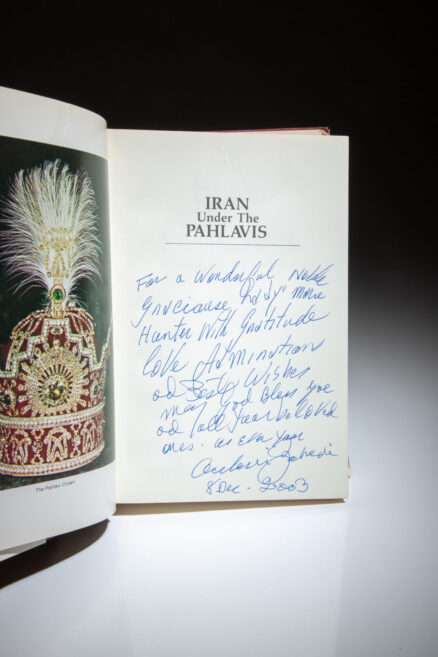 IRAN
Under The
PAHLAVIS
For a Wonderful Noble
Graciause Lady" Marie
Hunter With Gratitude
love Adminatian
ad Beste Wishes
may God Bless you
ad all your beloved
ones. as ever your
8 Dec - 2003
The Pahlavi Crown